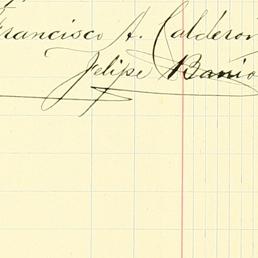 Francisco A. Calderon
Felipe Banio